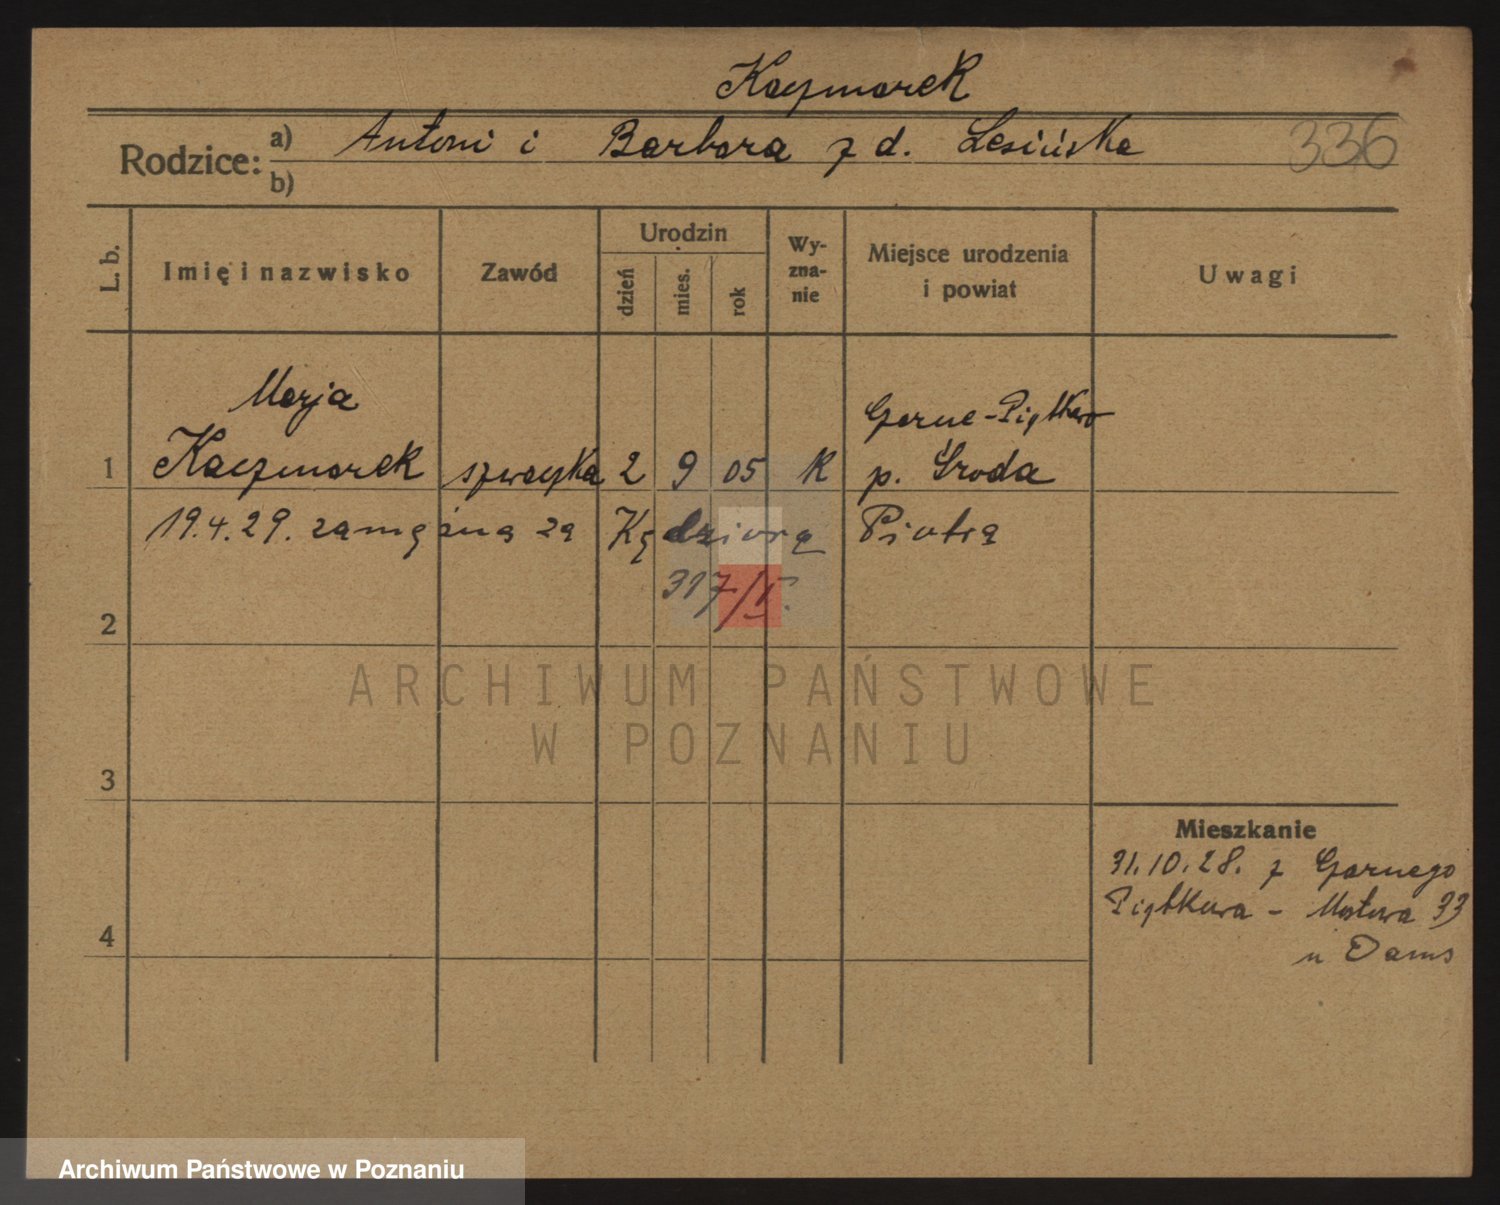 Kaczmarek
Rodzice: a) Antoni i Barbara z d. Lesińska
336
b)
L. b. Imię i nazwisko Zawód Urodzin dzień mies. rok Wy-zna-nie Miejsce urodzenia i powiat Uwagi
Marja Gorne-Piątkowo
1 Kaczmarek szwaczka 2 9 05 k p. Środa
19.4.29. zamężna za Kędziorą Piotra
317/I.
2
3
Mieszkanie
31.10.28. z Gornego
Piątkowa - Mostowa 33
u Dams
4
ARCHIWUM PAŃSTWOWE
W POZNANIU
Archiwum Państwowe w Poznaniu